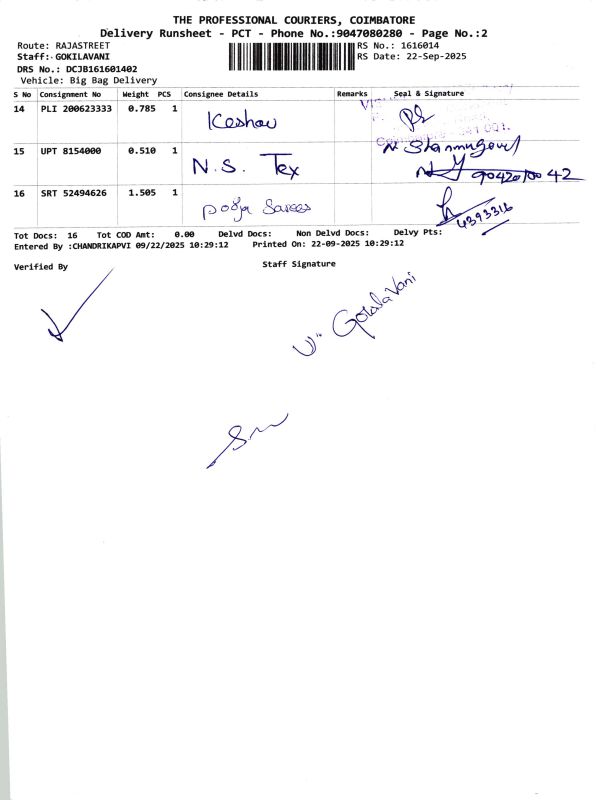 THE PROFESSIONAL COURIERS, COIMBATORE
Delivery Runsheet - PCT - Phone No.:9047080280 - Page No.:2
Route: RAJASTREET RS No.: 1616014
Staff: GOKILAVANI RS Date: 22-Sep-2025
DRS No.: DCJB161601402
Vehicle: Big Bag Delivery
S No Consignment No Weight PCS Consignee Details Remarks Seal & Signature
14 PLI 200623333 0.785 1 Keshav
641 001.
15 UPT 8154000 0.510 1 N.S. Tex N. Shanmugavel
9042010042
16 SRT 52494626 1.505 1 Pooja Sarees
4393316
Tot Docs: 16 Tot COD Amt: 0.00 Delvd Docs: Non Delvd Docs: Delvy Pts:
Entered By :CHANDRIKAPVI 09/22/2025 10:29:12 Printed On: 22-09-2025 10:29:12
Verified By Staff Signature
V. GokilaVani